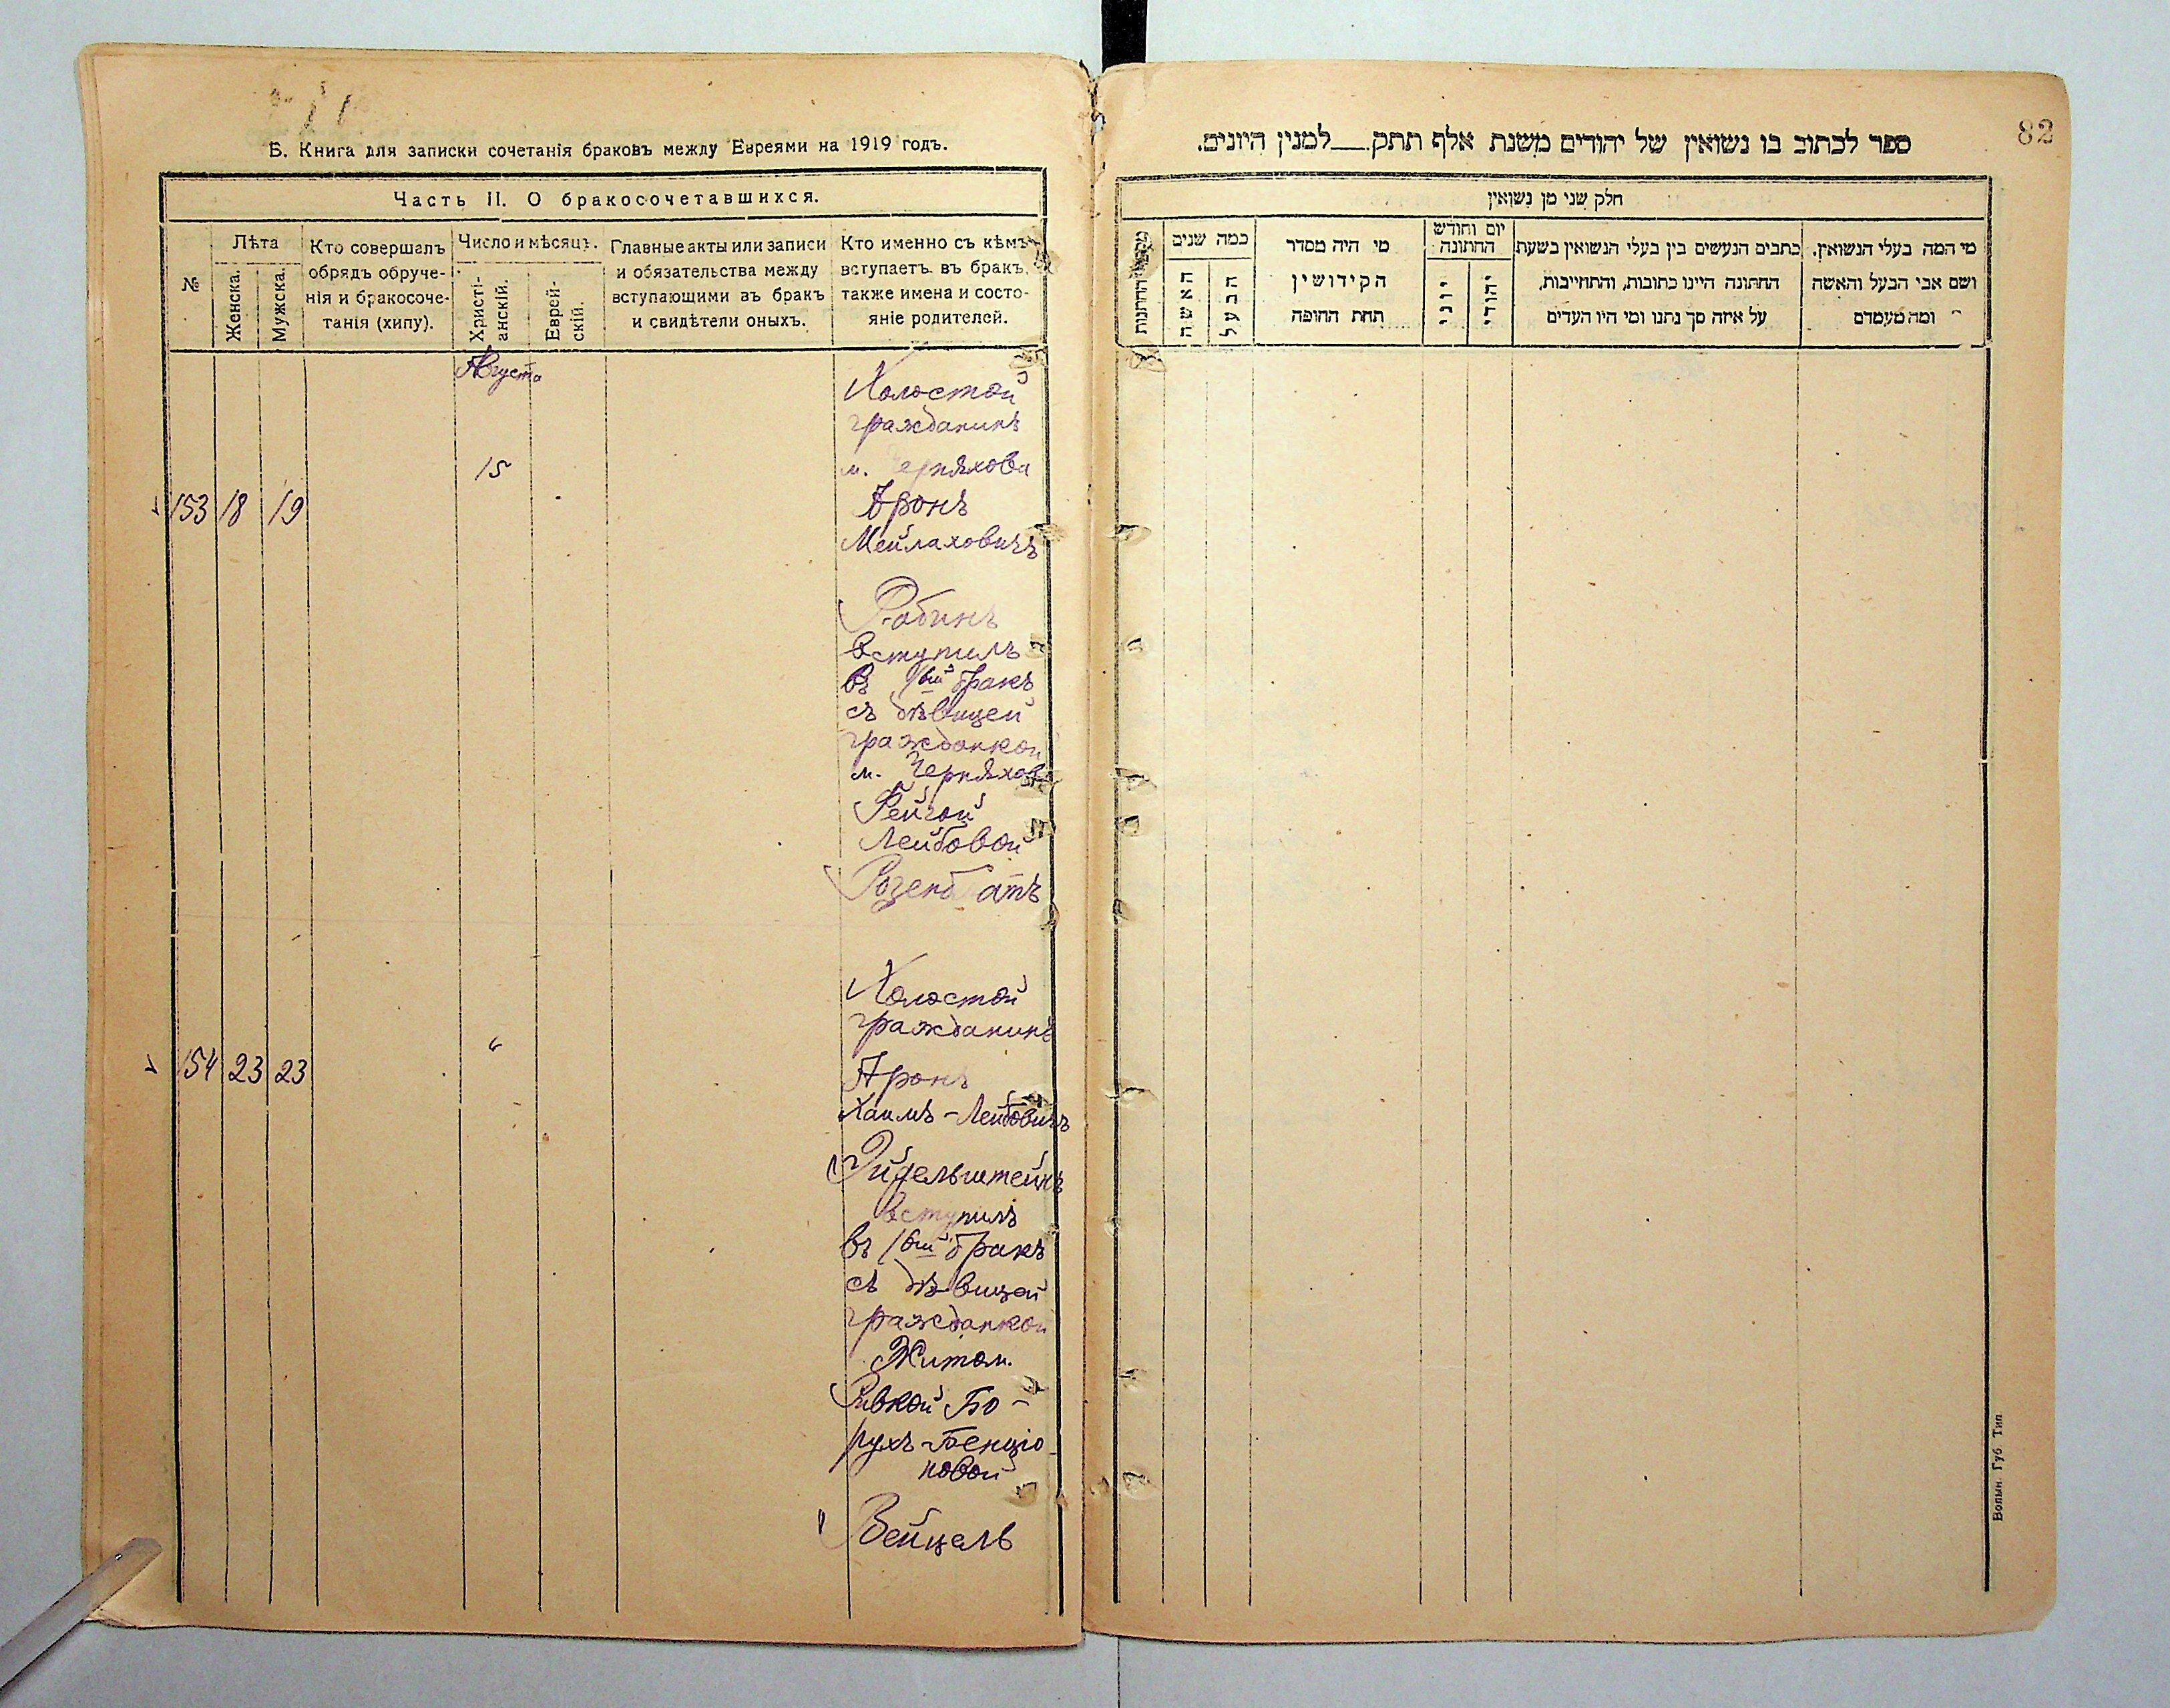 Б. Книга для записки сочетанія браковъ между Евреями на 1919 годъ.
Часть II. О бракосочетавшихся.
№
Лѣта
Женска.
Мужска.
Кто совершалъ
обрядъ обруче-
нія и бракосоче-
танія (хипу).
Число и мѣсяцъ.
Христі-
анскій.
Еврей-
скій.
Главные акты или записи
и обязательства между
вступающими въ бракъ
и свидѣтели оныхъ.
Кто именно съ кѣмъ
вступаетъ въ бракъ,
также имена и состо-
яніе родителей.
Августа
15
153 18 19
Холостой
гражданинъ
м. Черняхова
Аронъ
Мейлаховичъ
Рабинъ
вступилъ
въ 1ый бракъ
съ дѣвицей
гражданкой
м. Черняхов
Рейзой
Лейбовой
Розенб атъ
154 23 23
"
Холостой
гражданинъ
Аронъ
Хаимъ-Лейбовичъ
Эйдельштейнъ
вступилъ
въ 1ый бракъ
съ дѣвицей
гражданкой
Житом.
Ривкой Бо-
рухъ-Бенціо-
новой
Вейцель
82
ספר לכתוב בו נשואין של יהודים משנת אלף תתק__למנין היונים.
חלק שני מן נשואין
כמה שנים
האשה
הבעל
מי היה מסדר
הקידושין
תחת החופה
יום וחודש
החתונה
יוני
יהודי
כתבים הנעשים בין בעלי הנשואין בשעת
החתונה היינו כתובות, והתחייבות,
על איזה סך נתנו ומי היו העדים
מי המה בעלי הנשואין.
ושם אבי הבעל והאשה
ומה מעמדם
Волын. Губ Тип